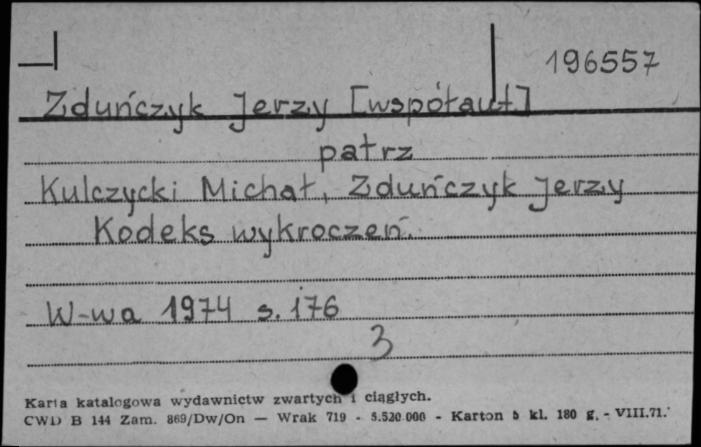 196557
Zduńczyk Jerzy [współaut]
patrz
Kulczycki Michał, Zduńczyk Jerzy
Kodeks wykroczeń.
W-wa 1974 s. 176
3
Karta katalogowa wydawnictw zwartych i ciągłych.
CWD B 144 Zam. 869/Dw/On — Wrak 719 - 5.520.000 - Karton b kl. 180 g. - VIII.71.